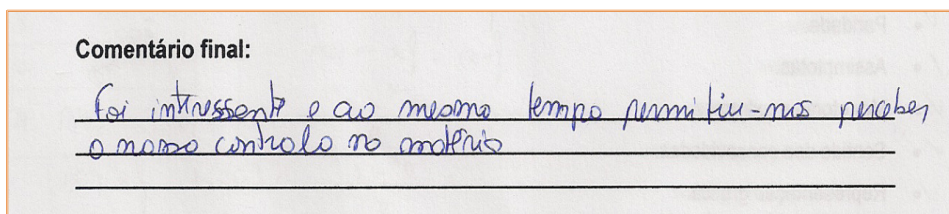 Comentário final:
foi intressente e ao mesmo tempo permitiu-nos perceber
o nosso controlo no matério